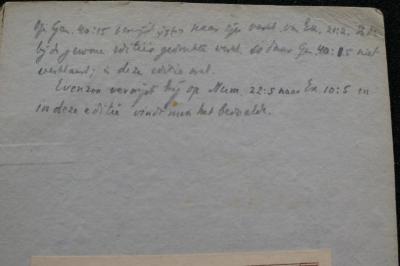 Op Gen. 40:15 verwijst hij naar zijn verkl. van Ex. 21:2. In de
bij de gewone editie gedrukte verkl. is daar Gen. 40:15 niet
verklaard; in deze editie wel.
Evenzoo verwijst hij op Num. 22:5 naar Ex. 10:5 en
in deze editie vindt men het bedoelde.